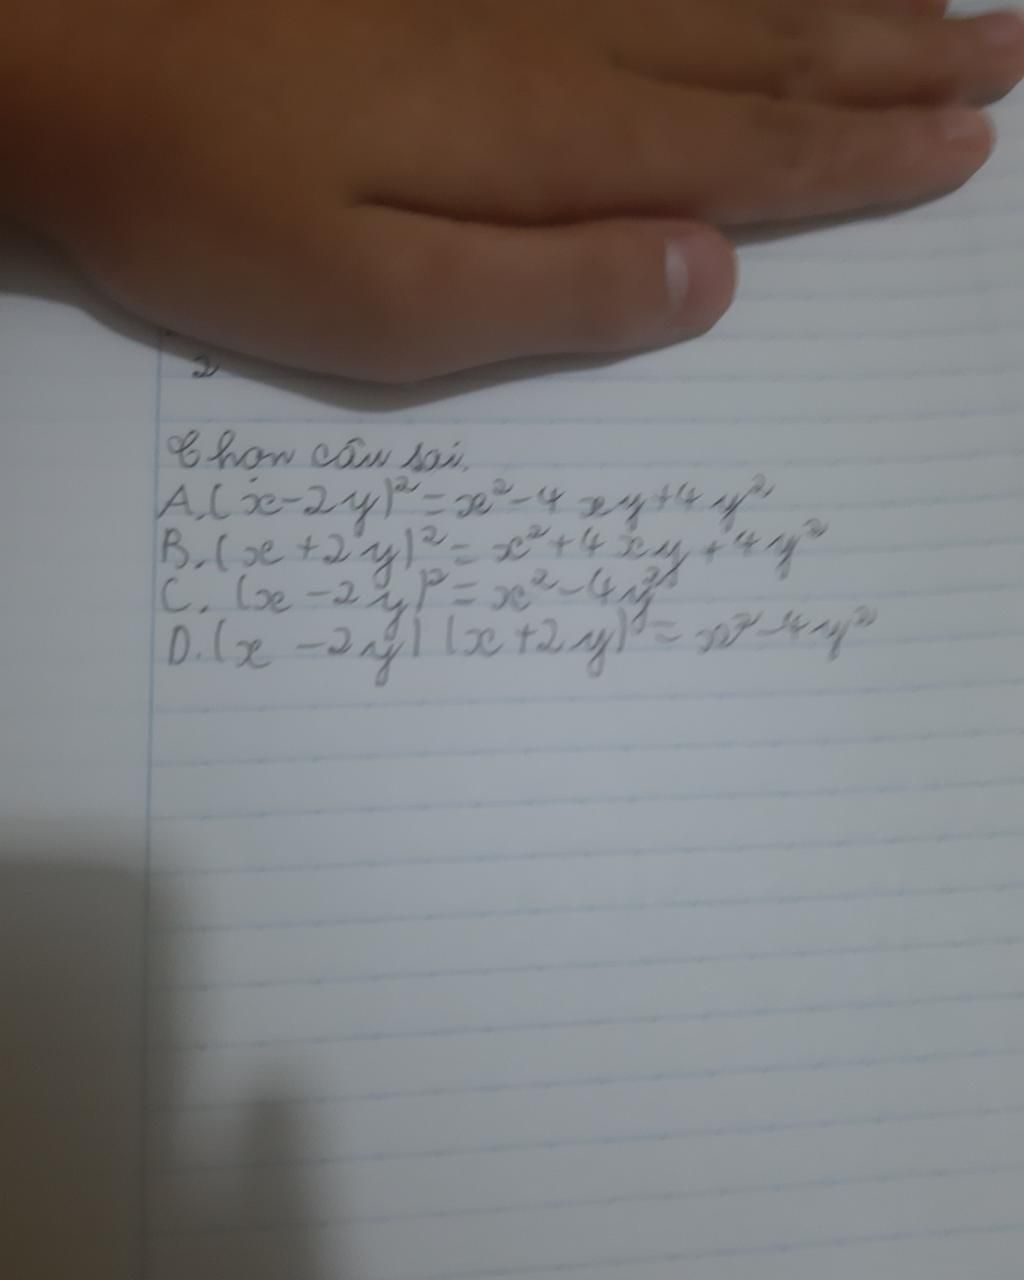 2
Chọn câu sai.
A. (x-2y)² = x² - 4xy + 4y²
B. (x + 2y)² = x² + 4xy + 4y²
C. (x - 2y)² = x² - 4y²
D. (x - 2y) (x + 2y) = x² - 4y²